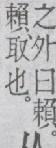 之外曰賴
賴取也